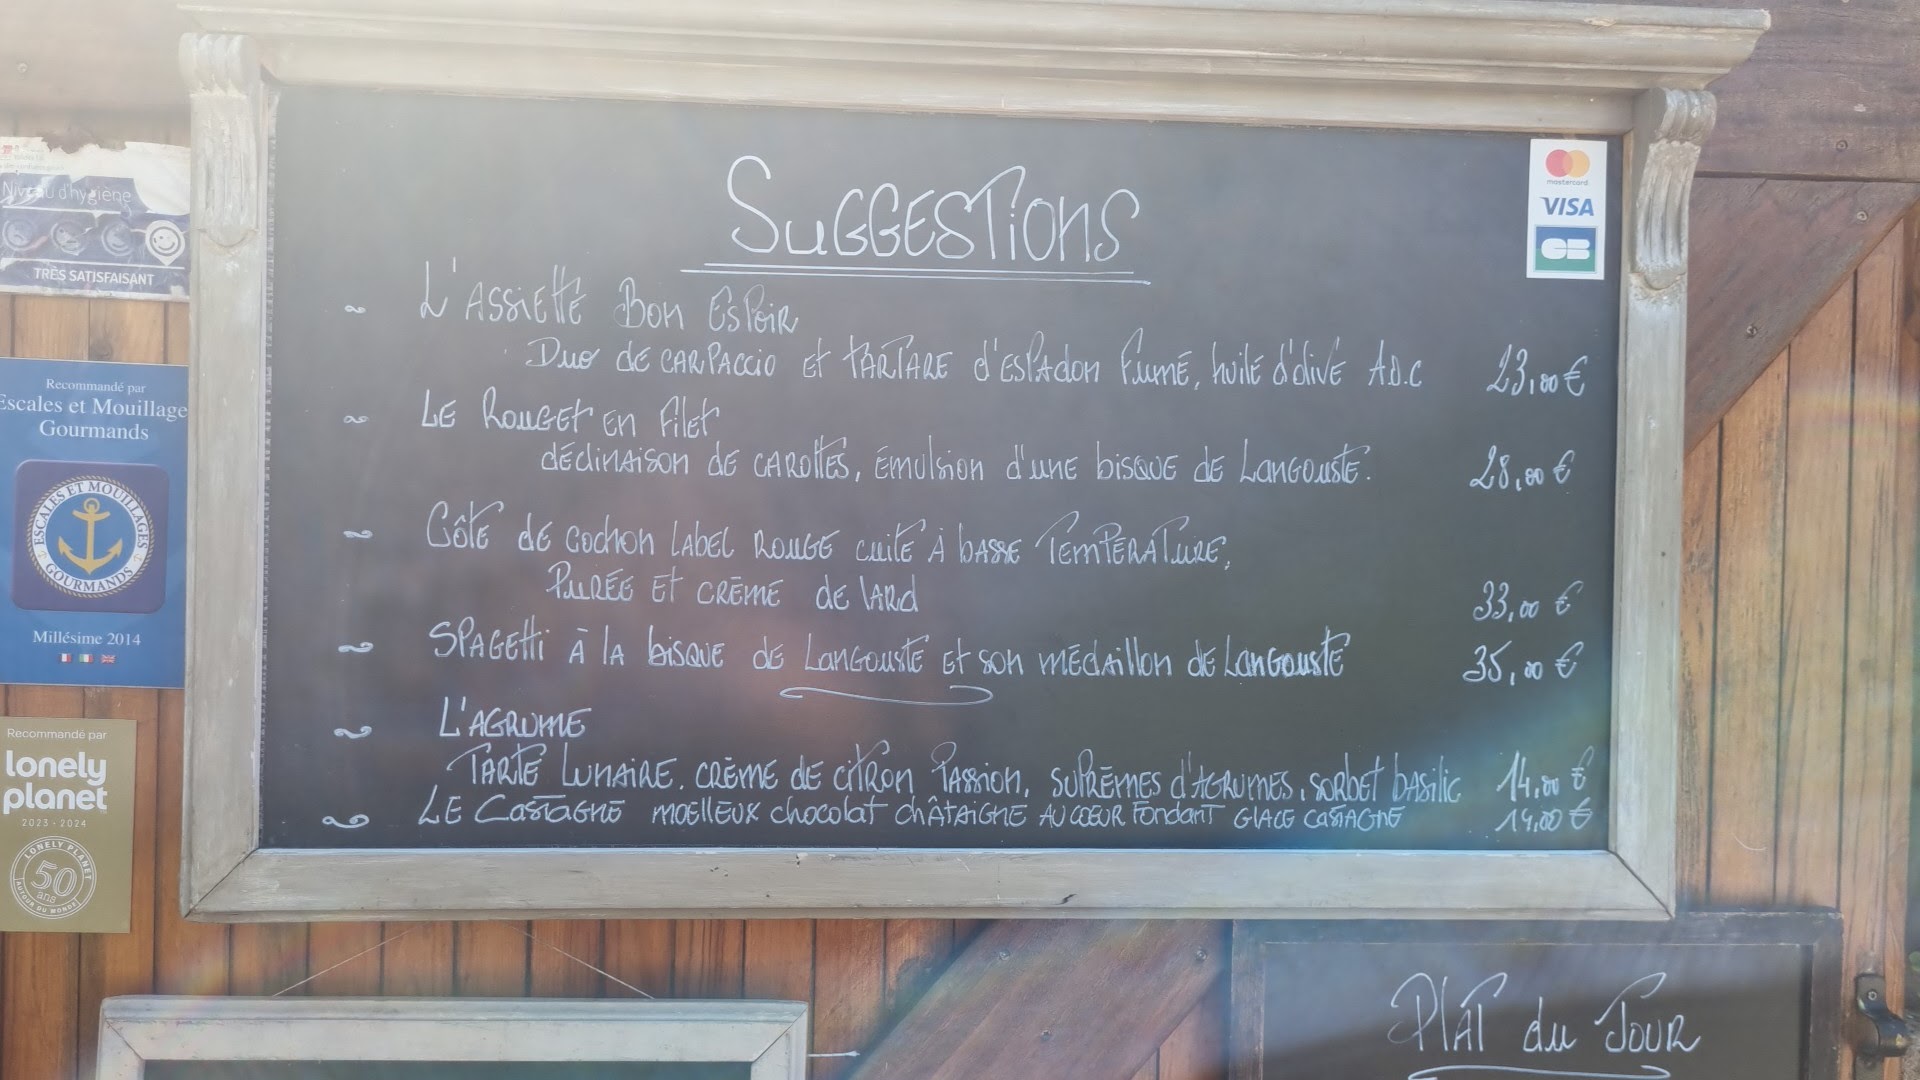 Suggestions
L'Assiette Bon Espoir
Duo de carpaccio et tartare d'espadon fumé, huile d'olive A.O.C 23,00 €
Le Rouget en filet
déclinaison de carottes, émulsion d'une bisque de Langouste. 28,00 €
Côte de cochon Label Rouge cuite à basse Température,
Purée et crème de lard 33,00 €
Spagetti à la bisque de Langouste et son médaillon de Langouste 35,00 €
L'Agrume
Tarte Lunaire, crème de citron Passion, suprêmes d'Agrumes, sorbet basilic 14,00 €
Le Castagne moelleux chocolat châtaigne au coeur fondant glace castagne 14,00 €
mastercard
VISA
CB
Niveau d'hygiène
TRÈS SATISFAISANT
Recommandé par
Escales et Mouillage
Gourmands
ESCALES ET MOUILLAGES
GOURMANDS
Millésime 2014
Recommandé par
lonely
planet
2023 - 2024
LONELY PLANET
50
ans
AUTOUR DU MONDE
Plat du Jour